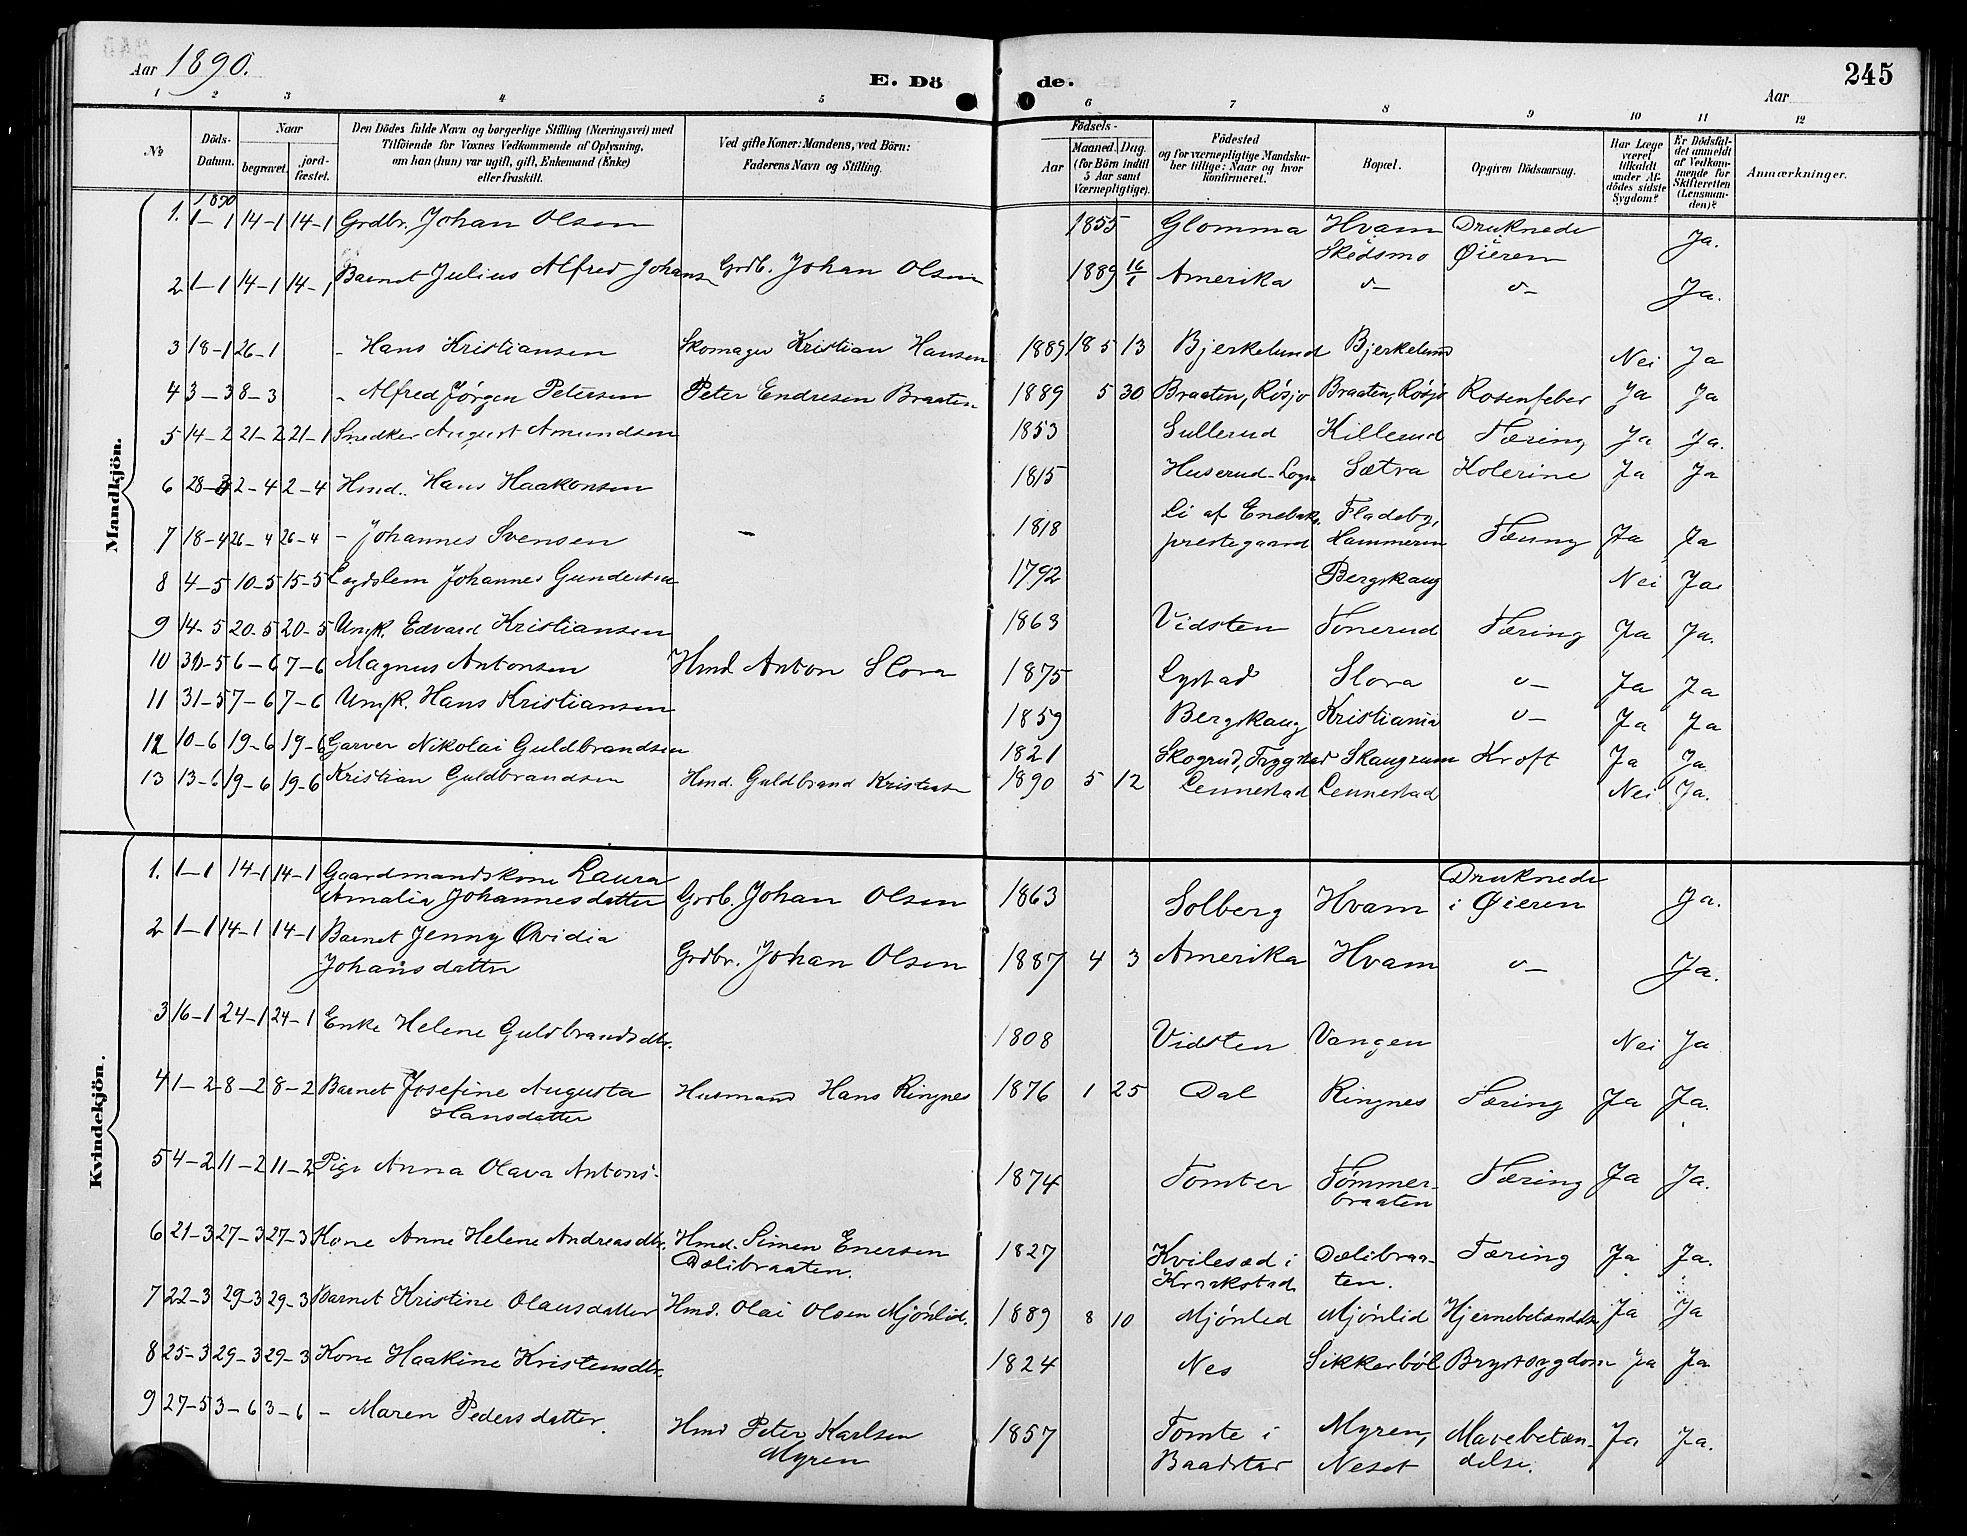 Aar 1890.
E. Dö
de.
245
Aar
1 2 3 4 5 6 7 8 9 10 11 12
No
Döds-Datum.
Naar
begravet.
jord-fæstet.
Den Dödes fulde Navn og borgerlige Stilling (Næringsvei) med
Tilföiende for Voxnes Vedkommende af Oplysning,
om han (hun) var ugift, gift, Enkemand (Enke)
eller fraskilt.
Ved gifte Koner: Mandens, ved Börn:
Faderens Navn og Stilling.
Födsels-
Aar
Maaned. Dag.
(for Börn indtil
5 Aar samt
Værnepligtige).
Födested
og for værnepligtige Mandska-
ber tillige: Naar og hvor
konfirmeret.
Bopæl.
Opgiven Dödsaarsag.
Har Læge
været
tilkaldt
under Af-
dödes sidste
Sygdom?
Er Dödsfal-
det anmeldt
af Vedkom-
mende for
Skifteretten
(Lensman-
den)?
Anmærkninger.
Mandkjön.
1890
1. 1-1 14-1 14-1 Grdbr. Johan Olsen 1855 Glomma Hvam Skedsmo Druknede Øieren Ja.
2 1-1 14-1 14-1 Barnet Julius Alfred Johans Grdb. Johan Olsen 1889 16/1 Amerika o- o- Ja.
3 18-1 26-1 - Hans Kristiansen Skomager Kristian Hansen 1889 5 13 Bjerkelund Bjerkelund Nei Ja
4 3-3 8-3 - Alfred Jørgen Petersen Peter Endresen Braaten 1889 5 30 Braaten, Røsjø Braaten, Røsjø Rosenfeber Ja Ja
5 14-2 21-2 21-1 Snedker August Amundsen 1853 Sullerud Killerud Tæring Ja Ja.
6 28-3 2-4 2-4 Hmd. Hans Haakonsen 1815 Huserud Sætra Kolerine Ja Ja
7 18-4 26-4 26-4 - Johannes Svensen - 1818 Li af Enebak. prestegaard Fladeby, Hammeren Tæring Ja Ja
8 4-5 10-5 15-5 Legdslem Johannes Gundersen 1792 Bergskaug Nei Ja
9 14-5 20-5 20-5 Ungk. Edvard Kristiansen 1863 Vidsten Tonerud Tæring Ja Ja.
10 30-5 6-6 7-6 Magnus Antonsen Hmd Anton Slora 1875 Lystad Slora o- Ja Ja
11 31-5 7-6 7-6 Ungk. Hans Kristiansen 1859 Bergskaug Kristiania o- Ja Ja
12 10-6 19-6 19-6 Garver Nikolai Guldbrandsen 1821 Skogrud, Trygstad Skaugrum Kræft Ja Ja
13 13-6 19-6 19-6 Kristian Guldbrandsen Hmd. Guldbrand Kristians 1890 5 12 Lennestad Lennestad Nei Ja.
Kvindekjön.
1. 1-1 14-1 14-1 Gaardmandskone Laura
Amalia Johannesdatter Grdb. Johan Olsen 1863 Solberg Hvam Druknede i Øieren Ja.
2 1-1 14-1 14-1 Barnet Jenny Ovidia
Johansdatter Grdbr. Johan Olsen 1887 4 3 Amerika Hvam o- Ja.
3 16-1 24-1 24-1 Enke Helene Guldbrandsdtr. 1808 Vidsten Vangen Nei Ja
4 1-2 8-2 8-2 Barnet Josefine Augusta
Hansdatter Husmand Hans Ringnes 1876 1 25 Dal Ringnes Tæring Ja Ja.
5 4-2 11-2 11-2 Pige Anna Olava Antons- 1874 Tomter Tømmerbraaten Tæring Ja Ja.
6 21-3 27-3 27-3 Kone Anne Helene Andreasdtr. Hmd. Simen Enersen
Dælibraaten. 1827 Kvilesæd i Kraakstad Dælibraaten. Tæring Ja Ja.
7 22-3 29-3 29-3 Barnet Kristine Olausdatter Hmd. Olai Olsen Mjønlid. 1889 8 10 Mjønlid Mjønlid Hjernebetændelse Ja Ja
8 25-3 29-3 29-3 Kone Haakine Kristensdtr. 1824 Nes Sikkerbøl Brystsygdom Ja Ja
9 27-5 3-6 3-6 - Maren Pedersdatter. Hmd Peter Karlsen
Myren 1857 Tomte i Baadstad Myren, Neset Mavebetændelse. Ja Ja.